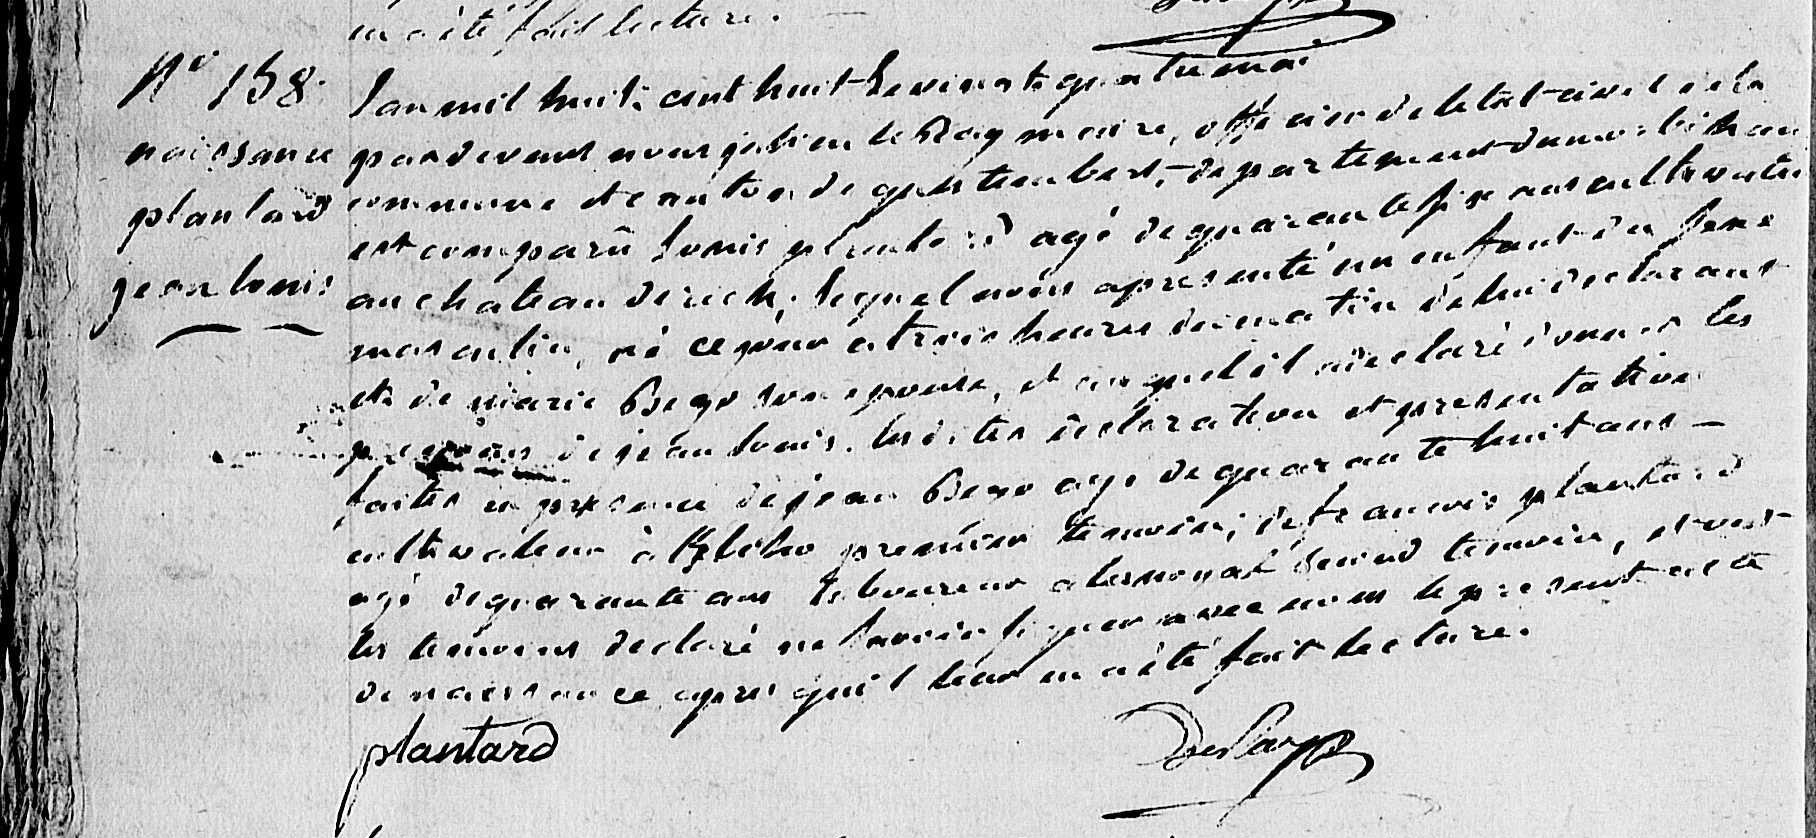 en a été fait lecture.
N° 158.
naissance
plantard
jean louis
L'an mil huit cent huit le vingt quatre mai
pardevant nous julien le Ray maire, officier de l'etat-civil de la
commune et canton de questembert, departement du morbihan
est comparû Louis plantard agé de quarante six ans cultivateur
au chateau de rech, lequel nous a présenté un enfant du sexe
masculin, né ce jour à trois heures du matin de lui declarant
et de marie Bego son epouse, et auquel il a declaré donner les
prenoms de jean louis. Lesdites declaration et presentation
faites en presence de jean Bego agé de quarante huit ans –
cultivateur à premier temoin; de francois plantard
agé de quarante ans laboureur a second temoin, et ont
les temoins declaré ne savoir signer avec nous le present acte
de naissance apres qu'il leur en a été fait lecture.
plantard